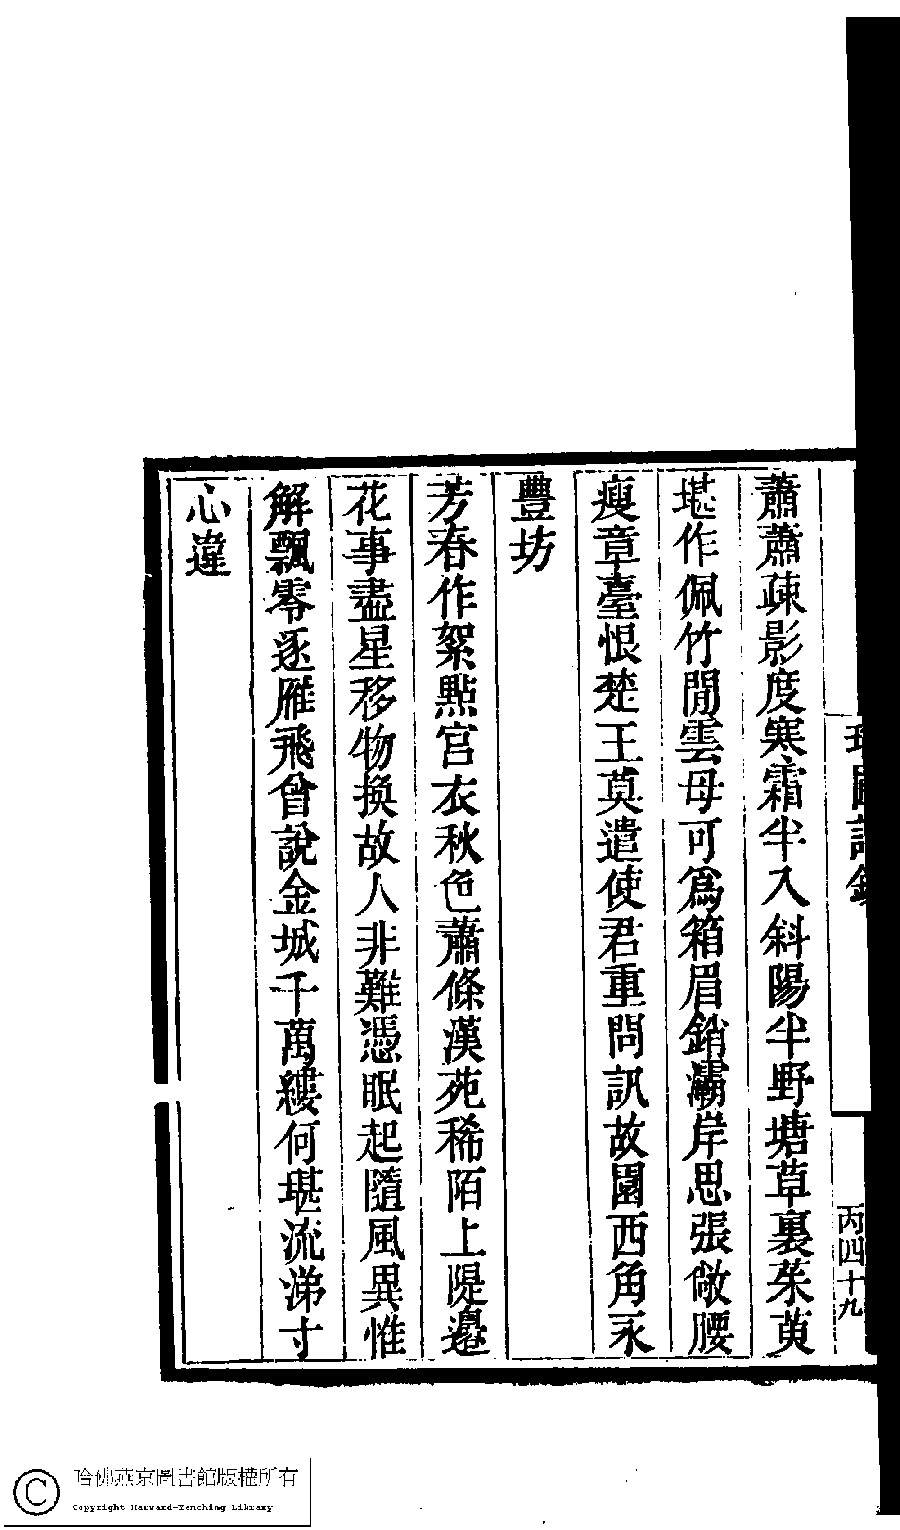 蕭蕭疎影度寒霜半入斜陽半野塘草裏茱萸
堪作佩竹閒雲母可爲箱眉銷灞岸思張敞腰
瘦章臺恨楚王莫遣使君重問訊故園西角永
豐坊
芳春作絮點宮衣秋色蕭條漢苑稀陌上隄邉
花事盡星移物換故人非難憑眠起隨風異惟
解飄零逐雁飛曾說金城千萬縷何堪流涕寸
心違
丙四十九
哈佛燕京圖書館版權所有
Copyright Harvard-Yenching Library